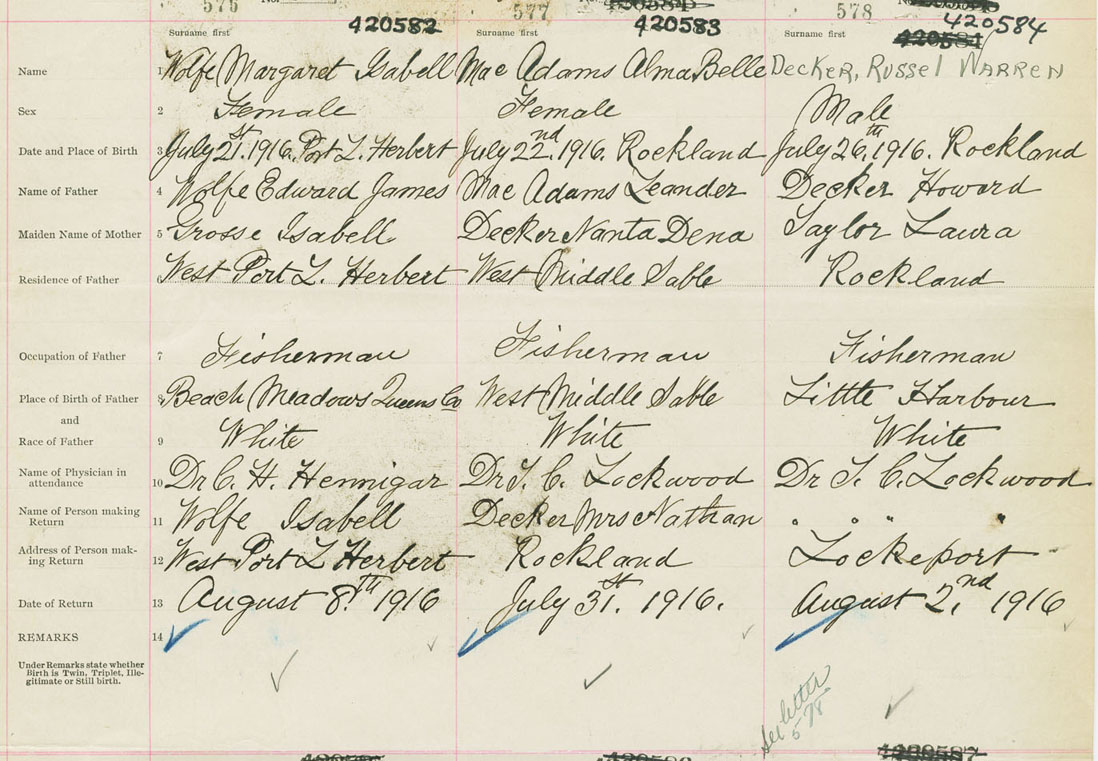 576 577 578
420582 420583 420584
Surname first Surname first Surname first
Name 1 Wolfe Margaret Isabell Mac Adams Alma Belle Decker, Russel Warren
Sex 2 Female Female Male
Date and Place of Birth 3 July 21st. 1916. Port L. Herbert July 22nd. 1916. Rockland July 26th. 1916. Rockland
Name of Father 4 Wolfe Edward James Mac Adams Leander Decker Howard
Maiden Name of Mother 5 Grosse Isabell Decker Nanta Dena Taylor Laura
Residence of Father 6 West Port L. Herbert West Middle Sable Rockland
Occupation of Father 7 Fisherman Fisherman Fisherman
Place of Birth of Father 8 Beach Meadows Queens Co West Middle Sable Little Harbour
and
Race of Father 9 White White White
Name of Physician in
attendance 10 Dr C. H. Hennigar Dr T. C. Lockwood Dr T. C. Lockwood
Name of Person making
Return 11 Wolfe Isabell Decker Mrs Nathan " " " "
Address of Person mak-
ing Return 12 West Port L Herbert Rockland Lockeport
Date of Return 13 August 8th. 1916 July 31st. 1916. August 2nd. 1916
REMARKS 14
Under Remarks state whether
Birth is Twin, Triplet, Ille-
gitimate or Still birth.
See letter
578